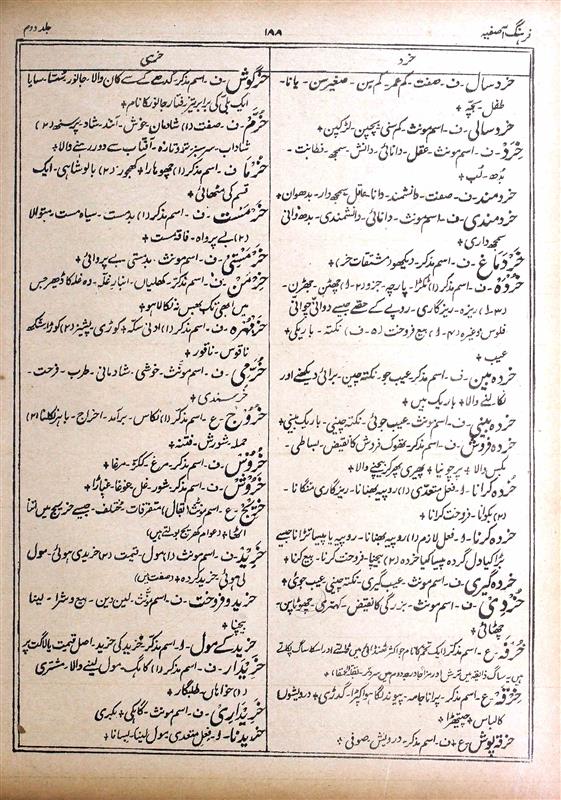 فرہنگ آصفیہ
۱۸۸
جلد دوم
خرد
خرد سال ۔ ف ۔ صفت ۔ کم عمر ۔ کم سِن ۔ صغیر سن ۔ یانا ۔
طفل ۔ بچّہ +
خرد سالی ۔ ف ۔ اسم مونث ۔ کم سنی ۔ بچپن ۔ لڑکپن +
خِرَد ۔ ف ۔ اسم مونث ۔ عقل ۔ دانائی ۔ دانش ۔ سمجھ ۔ فطانت ۔
بُدھ ۔ لُب +
خرد مند ۔ ف ۔ صفت ۔ دانشمند ۔ دانا ۔ عاقل ۔ سمجھ دار ۔ بدھوان +
خرد مندی ۔ ف ۔ اسم مونث ۔ دانائی ۔ دانشمندی ۔ بدھ وانی
سمجھ داری +
خردماغ ۔ ف ۔ اسم مذکر ۔ دیکھو (مشتقات خر) +
خُردہ ۔ ف ۔ اسم مذکر (۱) ٹکڑا ۔ پارچہ ۔ جزو (۲ - ا) چھٹن ۔ جھڑن ۔
(۳ - ا) ریزہ ۔ ریزگاری ۔ روپے کے حصّے جیسے دوانی چوانی
فلوس وغیرہ (۴ - ا) بیع فروخت (۵ - ف) نکتہ ۔ باریکی +
عیب +
خردہ بین ۔ ف ۔ اسم مذکر ۔ عیب جو ۔ نکتہ چین ۔ برائی دیکھنے اور
نکالنے والا + باریک بیں +
خردہ بینی ۔ ف ۔ اسم مونث ۔ عیب جوئی ۔ نکتہ چینی ۔ باریک بینی +
خردہ فروش ۔ ف ۔ اسم مذکر ۔ تھوک فروش کا نقیض ۔ بساطی ۔
بکس والا + پرچونیا + پھیری پھر کر بیچنے والا +
خردہ کرانا ۔ ا ۔ فعل متعدی (۱) روپیہ بھنانا ۔ ریزگاری منگانا ۔
(۲) بکوانا ۔ فروخت کرانا +
خردہ کرنا ۔ ا ۔ فعل لازم (۱) روپیہ بھنانا ۔ روپیہ یا پیسا تڑانا جیسے
(۲) بیچنا ۔ فروخت کرنا ۔ بیع کرنا +
خردہ گیری ۔ ف ۔ اسم مونث ۔ عیب گیری ۔ نکتہ چینی ۔ عیب جوئی +
خُردی ۔ ف ۔ اسم مونث ۔ بزرگی کا نقیض ۔ کہتری ۔ چھوٹا پن ۔
چھٹائی +
خرفہ ۔ ع ۔ اسم مذکر
خرقہ ۔ ع ۔ اسم مذکر ۔ پرانا جامہ ۔ پیوند لگا ہوا کپڑا ۔ گدڑی + درویشوں
کا لباس + چیتھڑا +
خرقہ پوش ۔ ع + ف ۔ اسم مذکر ۔ درویش ۔ صوفی +
خری
خرگوش ۔ ف ۔ اسم مذکر ۔ گدھے کے سے کان والا جانور ۔ سُسّا ۔ سایا
ایک بلّی کی برابر تیز رفتار جانور کا نام +
خُرّم ۔ ف ۔ صفت (۱) شادمان ۔ خوش ۔ آنند ۔ شاد ۔ پرسند (۲)
شاداب ۔ سرسبز ۔ تروتازہ ۔ آفتاب سے دور رہنے والا +
خُرما ۔ ف ۔ اسم مذکر (۱) چھوہارا + کھجور ۔ (۲) بالوشاہی ۔ ایک
قسم کی مٹھائی +
خرمست ۔ ف ۔ اسم مذکر (۱) بدمست ۔ سیاہ مست ۔ متوالا
(۲) بے پرواہ ۔ فاقہ مست +
خرمستی ۔ ف ۔ اسم مونث ۔ بدمستی ۔ بے پروائی +
خرمن ۔ ف ۔ اسم مذکر ۔ کھلیان ۔ انبارِ غلہ ۔ وہ غلہ کا ڈھیر جس
میں ابھی تک بھس نہ نکالا ہو +
خرمہرہ ۔ ف ۔ اسم مذکر (۱) ادنی سکّہ + کوڑی ۔ پشیز (۲) کوڑا ۔ سنکھ
ناقوس ۔ ناقور +
خُرمی ۔ ف ۔ اسم مونث ۔ خوشی ۔ شادمانی ۔ طرب ۔ فرحت ۔
خرسندی +
خروج ۔ ع ۔ اسم مذکر (۱) نکاس ۔ برآمد ۔ اخراج ۔ باہر نکلنا (۲)
حملہ ۔ شورش ۔ فتنہ +
خروس ۔ ف ۔ اسم مذکر ۔ مرغ ۔ ککڑ ۔ مرغا +
خروش ۔ ف ۔ اسم مذکر ۔ شور ۔ غل ۔ غوغا ۔ غپاڑا +
خریج ۔ ع ۔ اسم مونث (بقال) متفرقات مختلف ۔ جیسے خریج میں اتنا
اٹھا + (عوام کھریج بولتے ہیں)
خرید ۔ ف ۔ اسم مونث (۱) مول ۔ قیمت (۲) خریدی ہوئی ۔ مول
لی ہوئی ۔ خرید کردہ + (صفت میں)
خرید و فروخت ۔ ف ۔ اسم مونث ۔ لین دین ۔ بیع و شرا ۔ لینا
بیچنا +
خرید کے مول ۔ ا ۔ اسم مذکر ۔ خرید کی خرید ۔ اصل قیمت یا لاگت پر
خریدار ۔ ف ۔ اسم مذکر (۱) گاہک ۔ مول لینے والا ۔ مشتری
(۲) خواہاں ۔ طلبگار +
خریداری ۔ ف ۔ اسم مونث ۔ گاہکی + بکری
خریدنا ۔ ا ۔ فعل متعدی ۔ مول لینا ۔ بسانا +